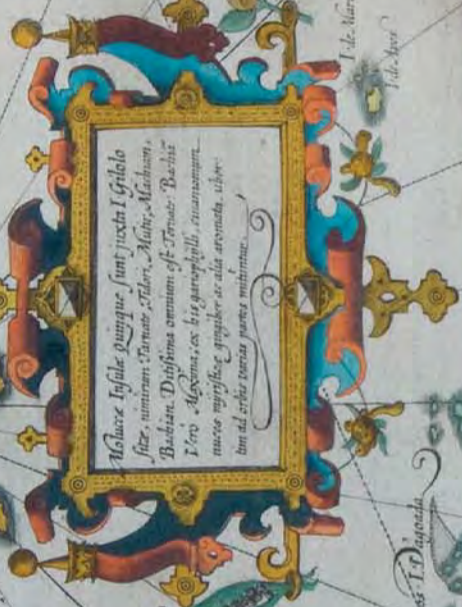 Moluccæ Insulæ Quinque sunt juxta I Gilolo
sitæ, nimirum Tarnate, Tidori, Mutir, Machiam,
Bachian. Ditissima omnium est Ternate. Bachiæ
Vero Maxima, ex his garyophylli, cinamomum
nuces myristicæ gingiber ac alia aromata, uber
tim ad orbis varias partes mittuntur.
I. de Mar
I. de Aves
I. Dagoada